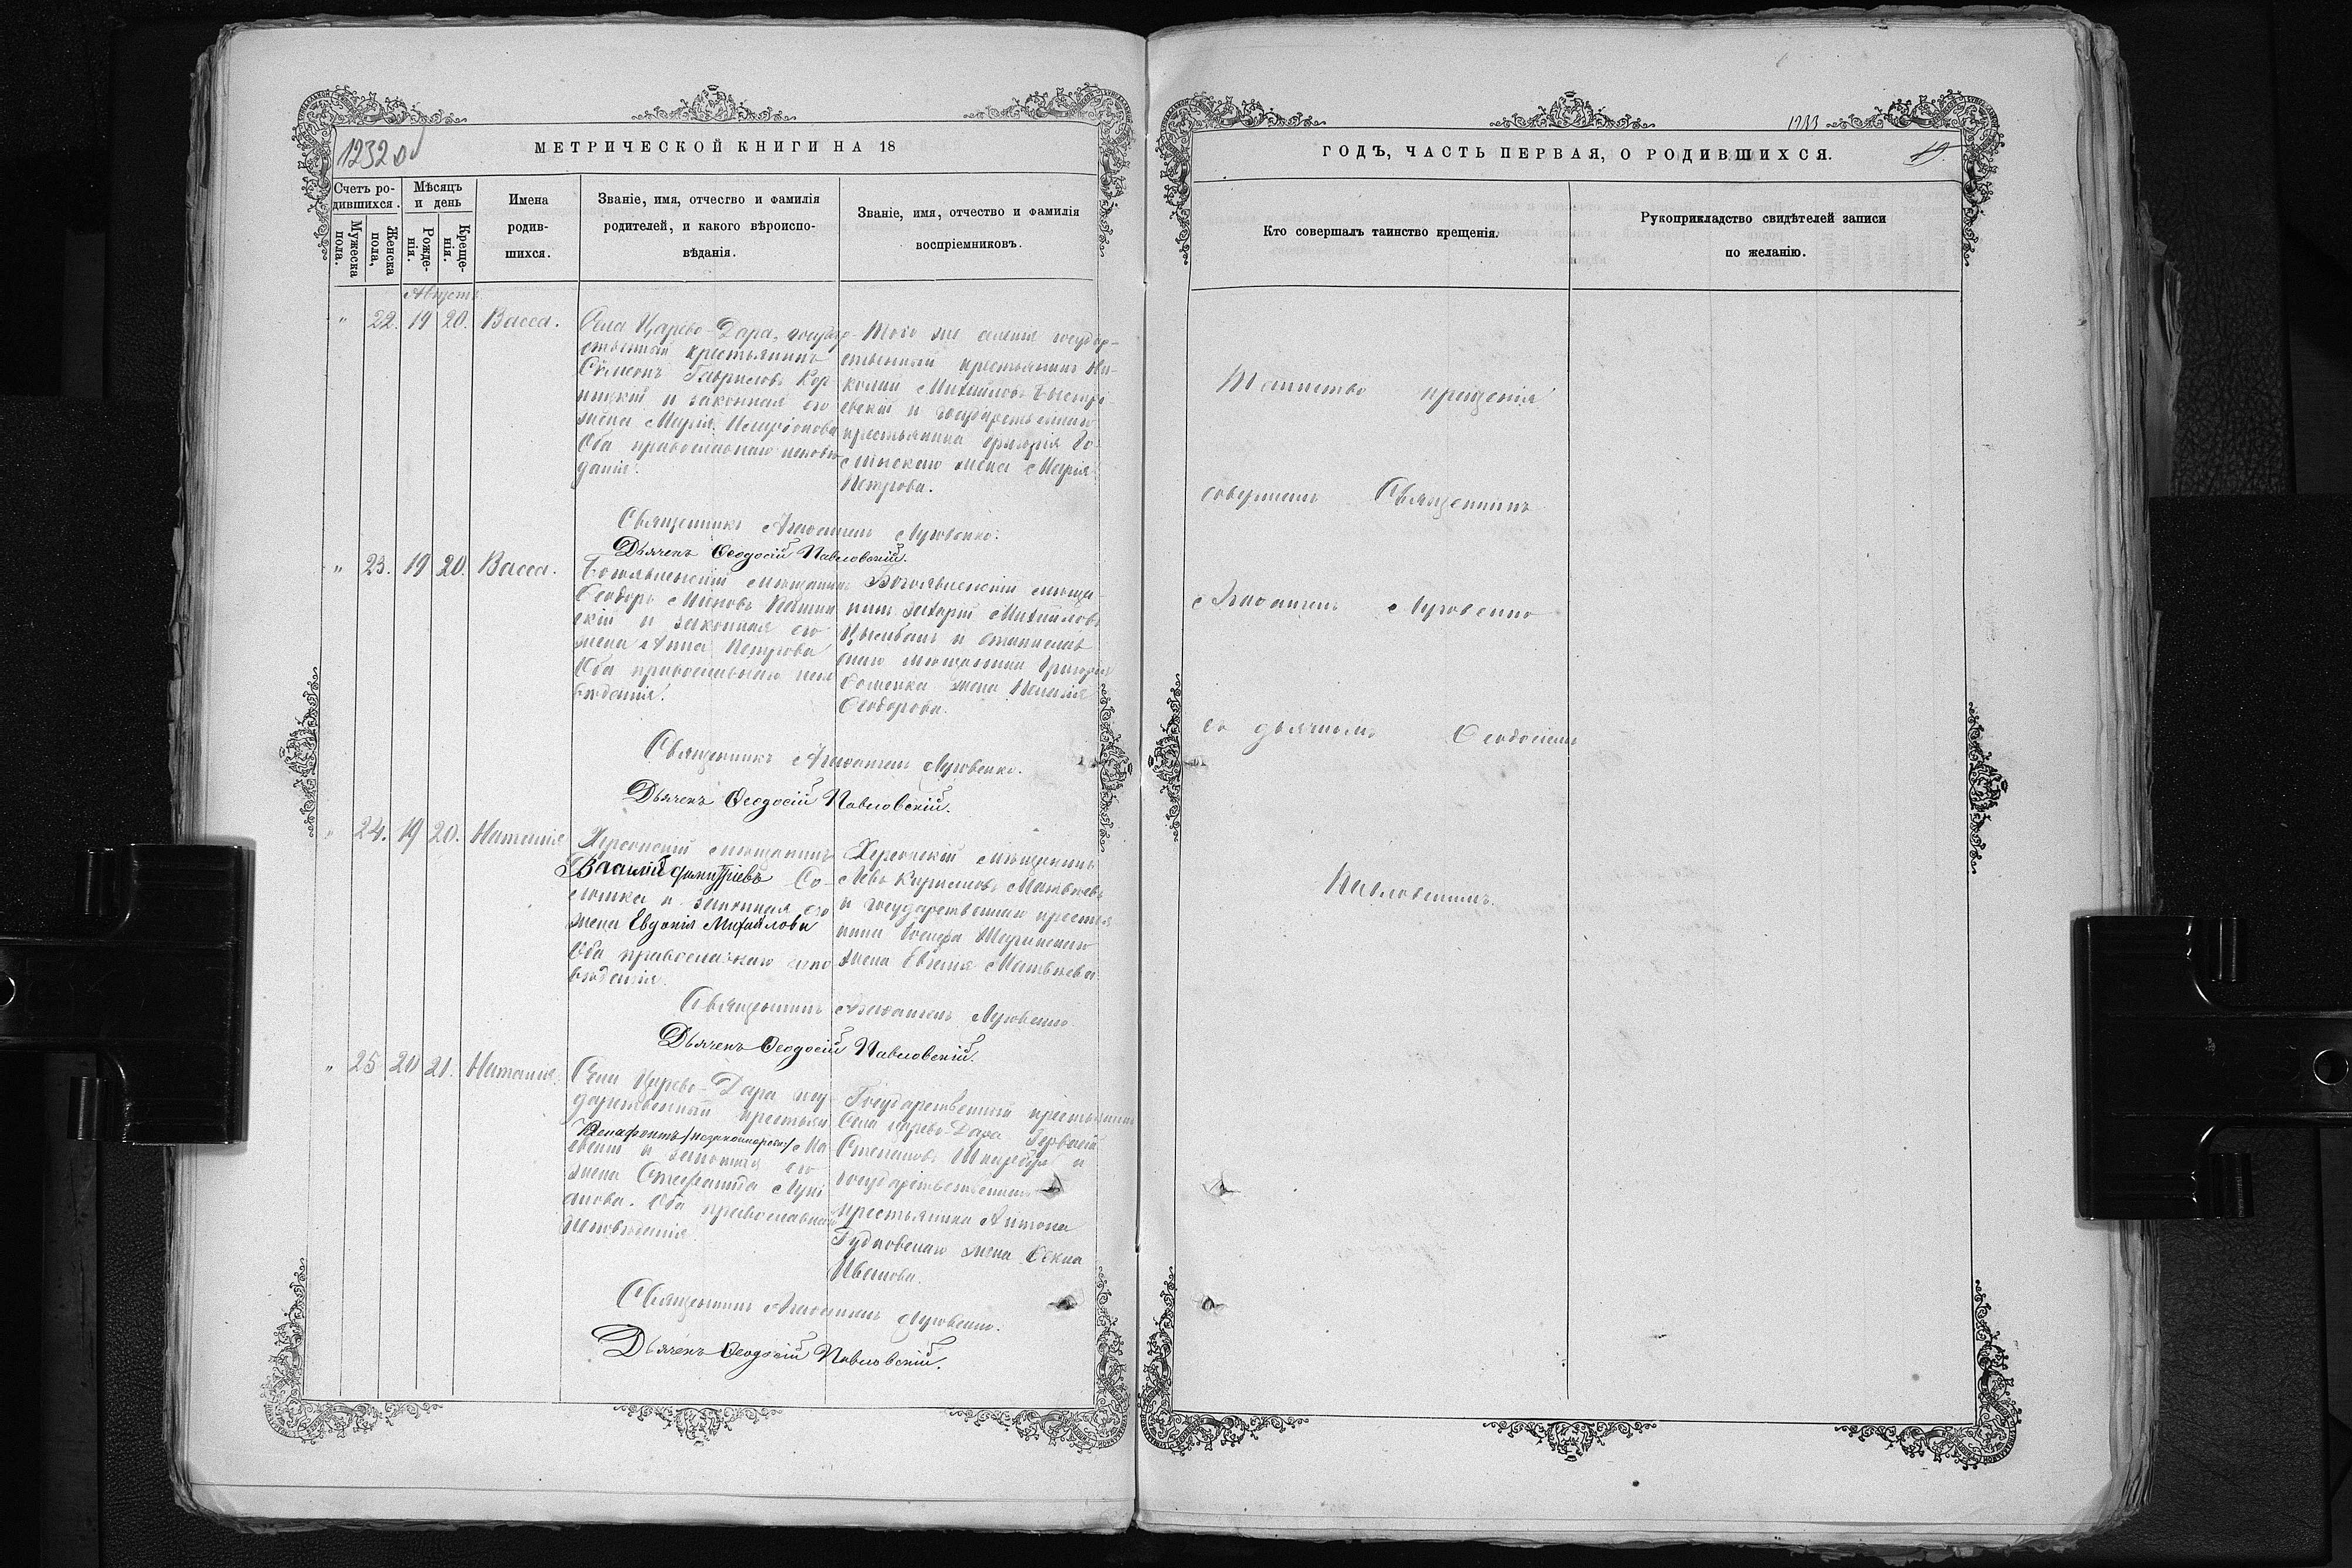 1232 об
МЕТРИЧЕСКОЙ КНИГИ НА 18
Счетъ ро-
дившихся.
Мужеска
пола.
Женска
пола,
Мѣсяцъ
и день
Рожде-
нія.
Креще-
нія.
Имена
родив-
шихся.
Званіе, имя, отчество и фамилія
родителей, и какого вѣроиспо-
вѣданія.
Званіе, имя, отчество и фамилія
воспріемниковъ.
Августъ
" 22. 19 20. Васса.
Села Царево-Дара, государ-
ственный крестьянинъ
Сѵмеонъ Гавриловъ
и законная его
жена Марія
Оба православнаго исповѣ
данія.
Того же селенія государ-
ственный крестьянинъ Ни-
колай Михайловъ
и государственнаго
крестьянина Григорія
жена Марія
Петрова.
Священникъ Луговенко.
Дьячекъ Ѳеодосій Павловскій.
" 23. 19 20. Васса.
Богоявленскій мѣщанинъ
Ѳеодоръ
скій и законная его
жена Анна Петрова
Оба православнаго испо
вѣданія.
Богоявленскій мѣща-
нинъ Захарій Михайловъ
Цымбалъ и
мѣщанина Григорія
жена Пелагія
Ѳеодорова.
Священникъ Луговенко.
Дьячекъ Ѳеодосій Павловскій.
" 24. 19 20. Наталія
Херсонскій мѣщанинъ
Василій Димитріевъ Со-
и законная его
жена Евдокія Михайлова
Оба православнаго испо
вѣданія.
Херсонскій мѣщанинъ
Левъ Кириловъ Матвѣевъ
и государственнаго крестья
нина
жена Евгенія Матвѣева
Священникъ Луговенко
Дьячекъ Ѳеодосій Павловскій.
" 25 20 21. Наталія.
Села Царево-Дара госу
дарственный крестьян
Ксенофонтъ /незаконнорожд/
и законная его
жена Стефанида Луки
анова. Оба православнаго
исповѣданія.
Государственный крестьянинъ
Села Царево-Дара Гервасій
Степановъ и
государственнаго
крестьянина Антона
Гудковскаго жена Ѳекла
Иванова.
Священникъ Луговенко.
Дьячекъ Ѳеодосій Павловскій.
1233
19.
ГОДЪ, ЧАСТЬ ПЕРВАЯ, О РОДИВШИХСЯ.
Кто совершалъ таинство крещенія.
Рукоприкладство свидѣтелей записи
по желанію.
Таинство крещенія
совершалъ Священникъ
Луговенко
съ дьячкомъ Ѳеодосіемъ
Павловскимъ.